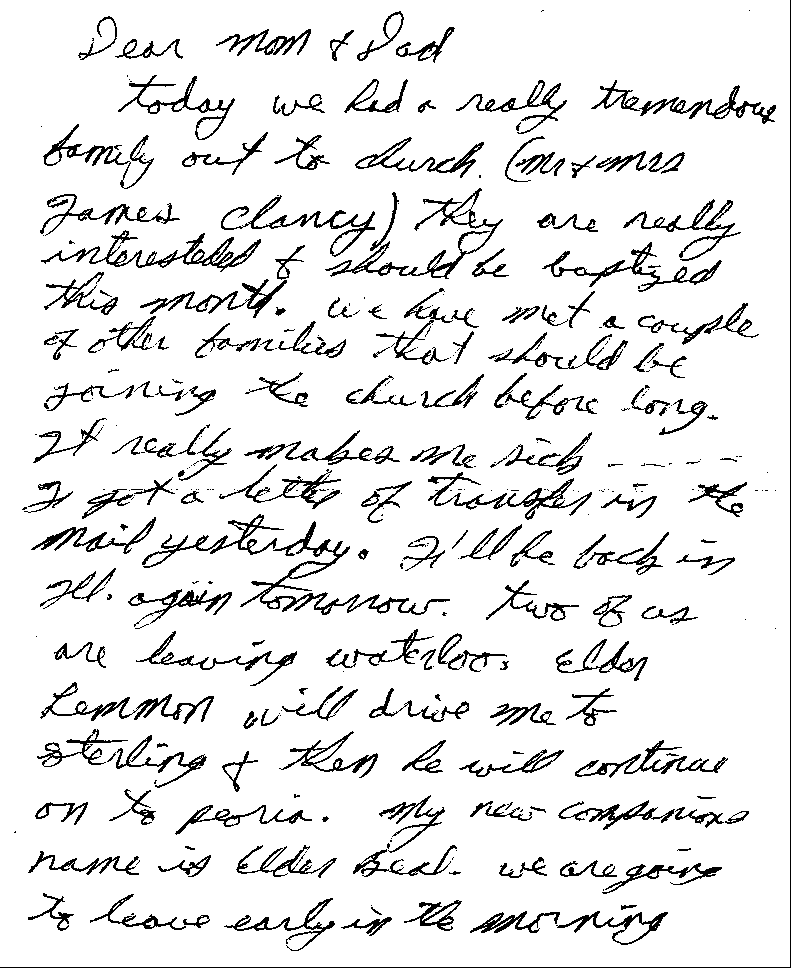 Dear mom & Dad
today we had a really tremendous
family out to church. (mr & mrs
James Clancy) they are really
interesteded & should be baptized
this month. we have met a couple
of other families that should be
joining the church before long.
It really makes me sick -----
I got a letter of transfer in the
mail yesterday. I'll be back in
Ill. again tomorrow. two of us
are leaving waterloo. Elder
Lemmon will drive me to
sterling & then he will continue
on to peoria. my new companions
name is Elder Beal. we are going
to leave early in the morning